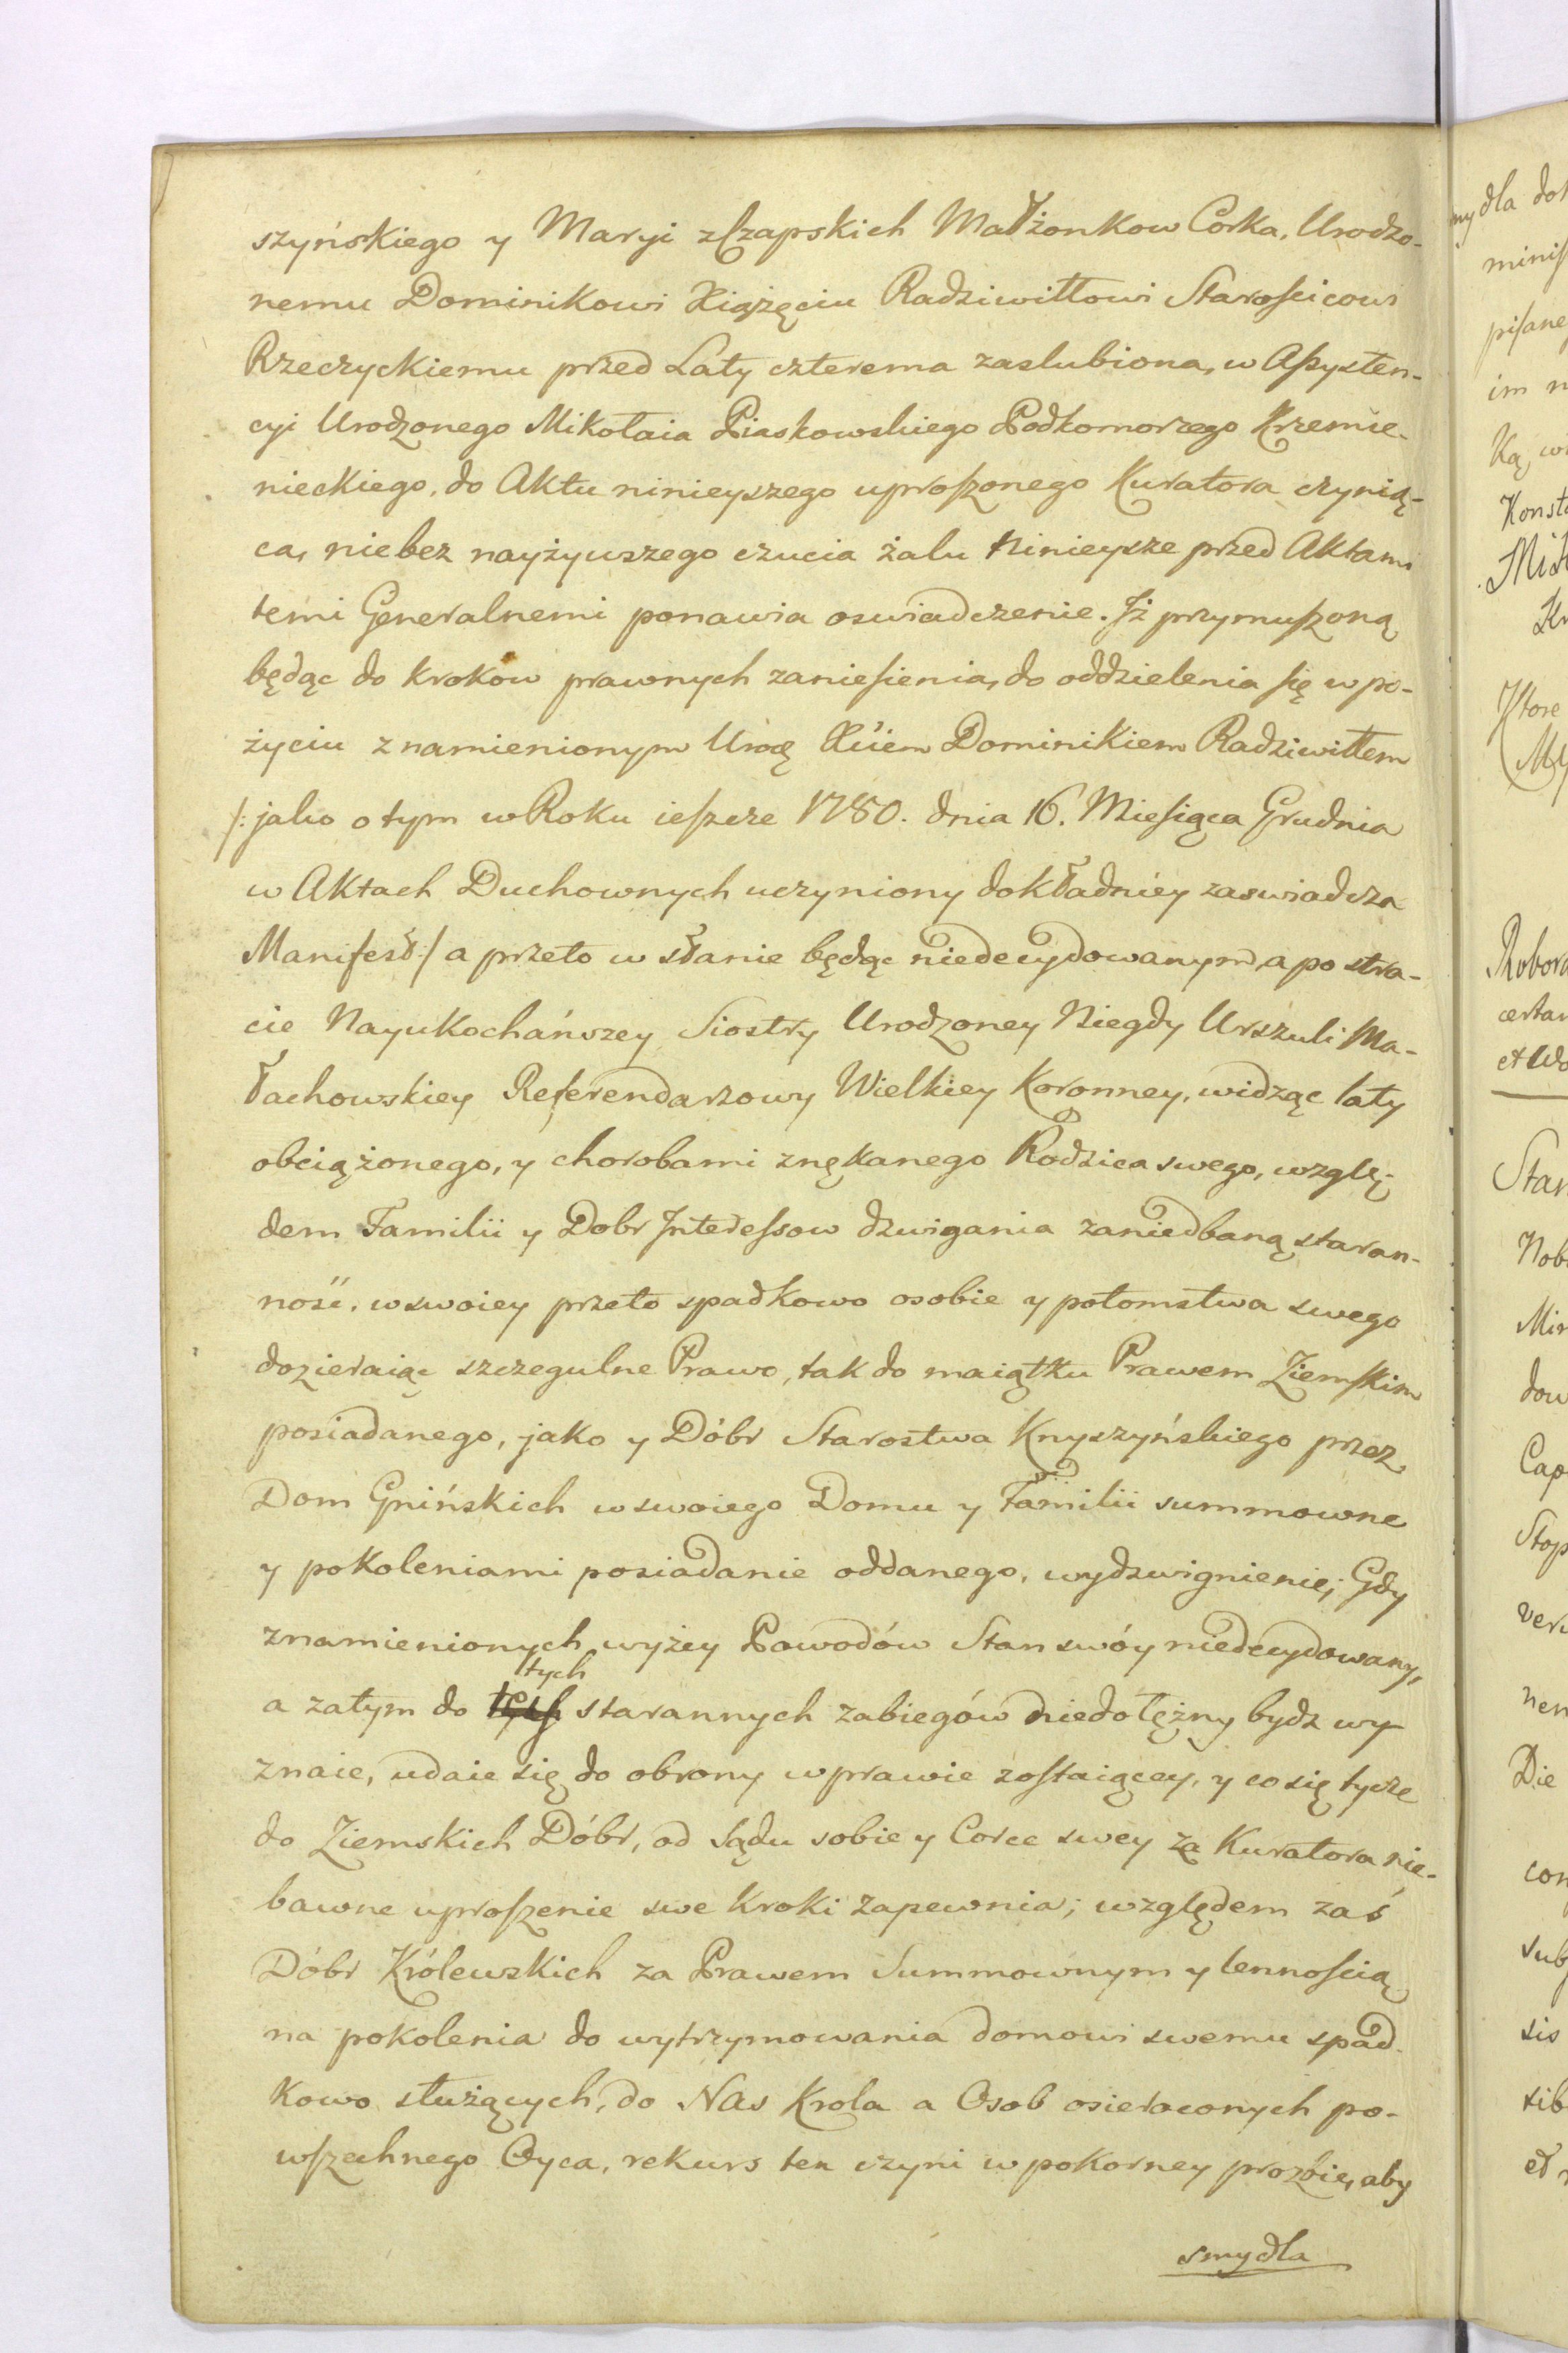 szyńskiego y Maryi z Czapskich Małżonkow Corka, Urodzo-
nemu Dominikowi Xiążęciu Radziwiłłowi Starościcowi
Rzeczyckiemu przed Laty czterema zaslubiona, w Assysten-
cyi Urodzonego Mikołaia Piaskowskiego Podkomorzego Krzemie-
nieckiego, do Aktu ninieyszego uproszonego Kuratora czynią-
ca, niebez nayżywszego czucia żalu Ninieysze przed Aktami
temi Generalnemi ponawia oswiadczenie. Jż przymuszoną
będąc do krokow prawnych zaniesienia, do oddzielenia się w po-
życiu z namienionym Urodź Xciem Dominikiem Radziwiłłem
/: jako o tym w Roku ieszcze 1780. dnia 16. Miesiąca Grudnia
w Aktach Duchownych uczyniony dokładniey zaswiadcza
Manifest :/ a przeto w stanie będąc niedecydowanym, a po stra-
cie Nayukochańszey Siostry Urodzoney Niegdy Urszuli Ma-
łachowskiey Referendarzowy Wielkiey Koronney, widząc laty
obciążonego, y chorobami znękanego Rodzica swego, wzglę-
dem Familii y Dobr Jnteressow dzwigania zaniedbaną staran-
ność, w swoiey przeto spadkowo osobie y potomstwa swego
dozieraiąc szczegulne Prawo, tak do maiątku Prawem Ziemskim
posiadanego, jako y Dóbr Starostwa Knyszyńskiego przez
Dom Gnińskich w swoiego Domu y Familii summowne
y pokoleniami posiadanie oddanego, wydzwignienie; Gdy
znamienionych wyżey Powodów Stan swóy niedecydowany,
tych
a zatym do starannych zabiegów niedołężny bydz wy-
znaie, udaie się do obrony w prawie zostaiącey, y co się tycze
do Ziemskich Dóbr, od Sądu sobie y Corce swey za Kuratora nie-
bawne uproszenie swe kroki zapewnia; względem zaś
Dóbr Królewskich za Prawem Summownym y lennością
na pokolenia do wytrzymowania domowi swemu spad-
kowo służących, do NAs Krola a Osob osieroconych po-
wszechnego Oyca, rekurs ten czyni w pokorney prozbie, aby
smy dla